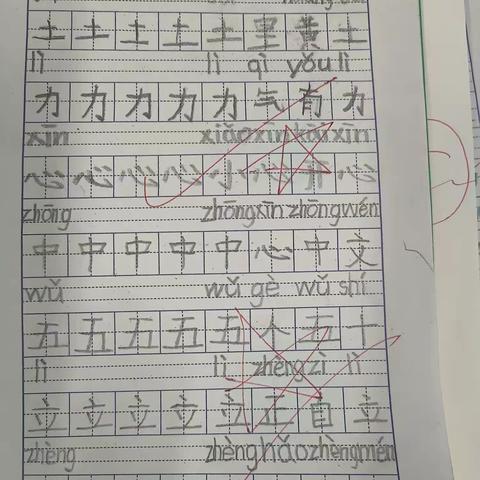 土 土 土 土 土 里 黄 土
lì lì qì yǒu lì
力 力 力 力 力 气 有 力
xīn xiǎo xīn kāi xīn
心 心 心 心 小 心 开 心
zhōng zhōng xīn zhōng wén
中 中 中 中 中 心 中 文
wǔ wǔ gè wǔ shí
五 五 五 五 五 个 五 十
lì lì zhèng zì lì
立 立 立 立 立 正 自 立
zhèng zhèng hǎo zhèng mén